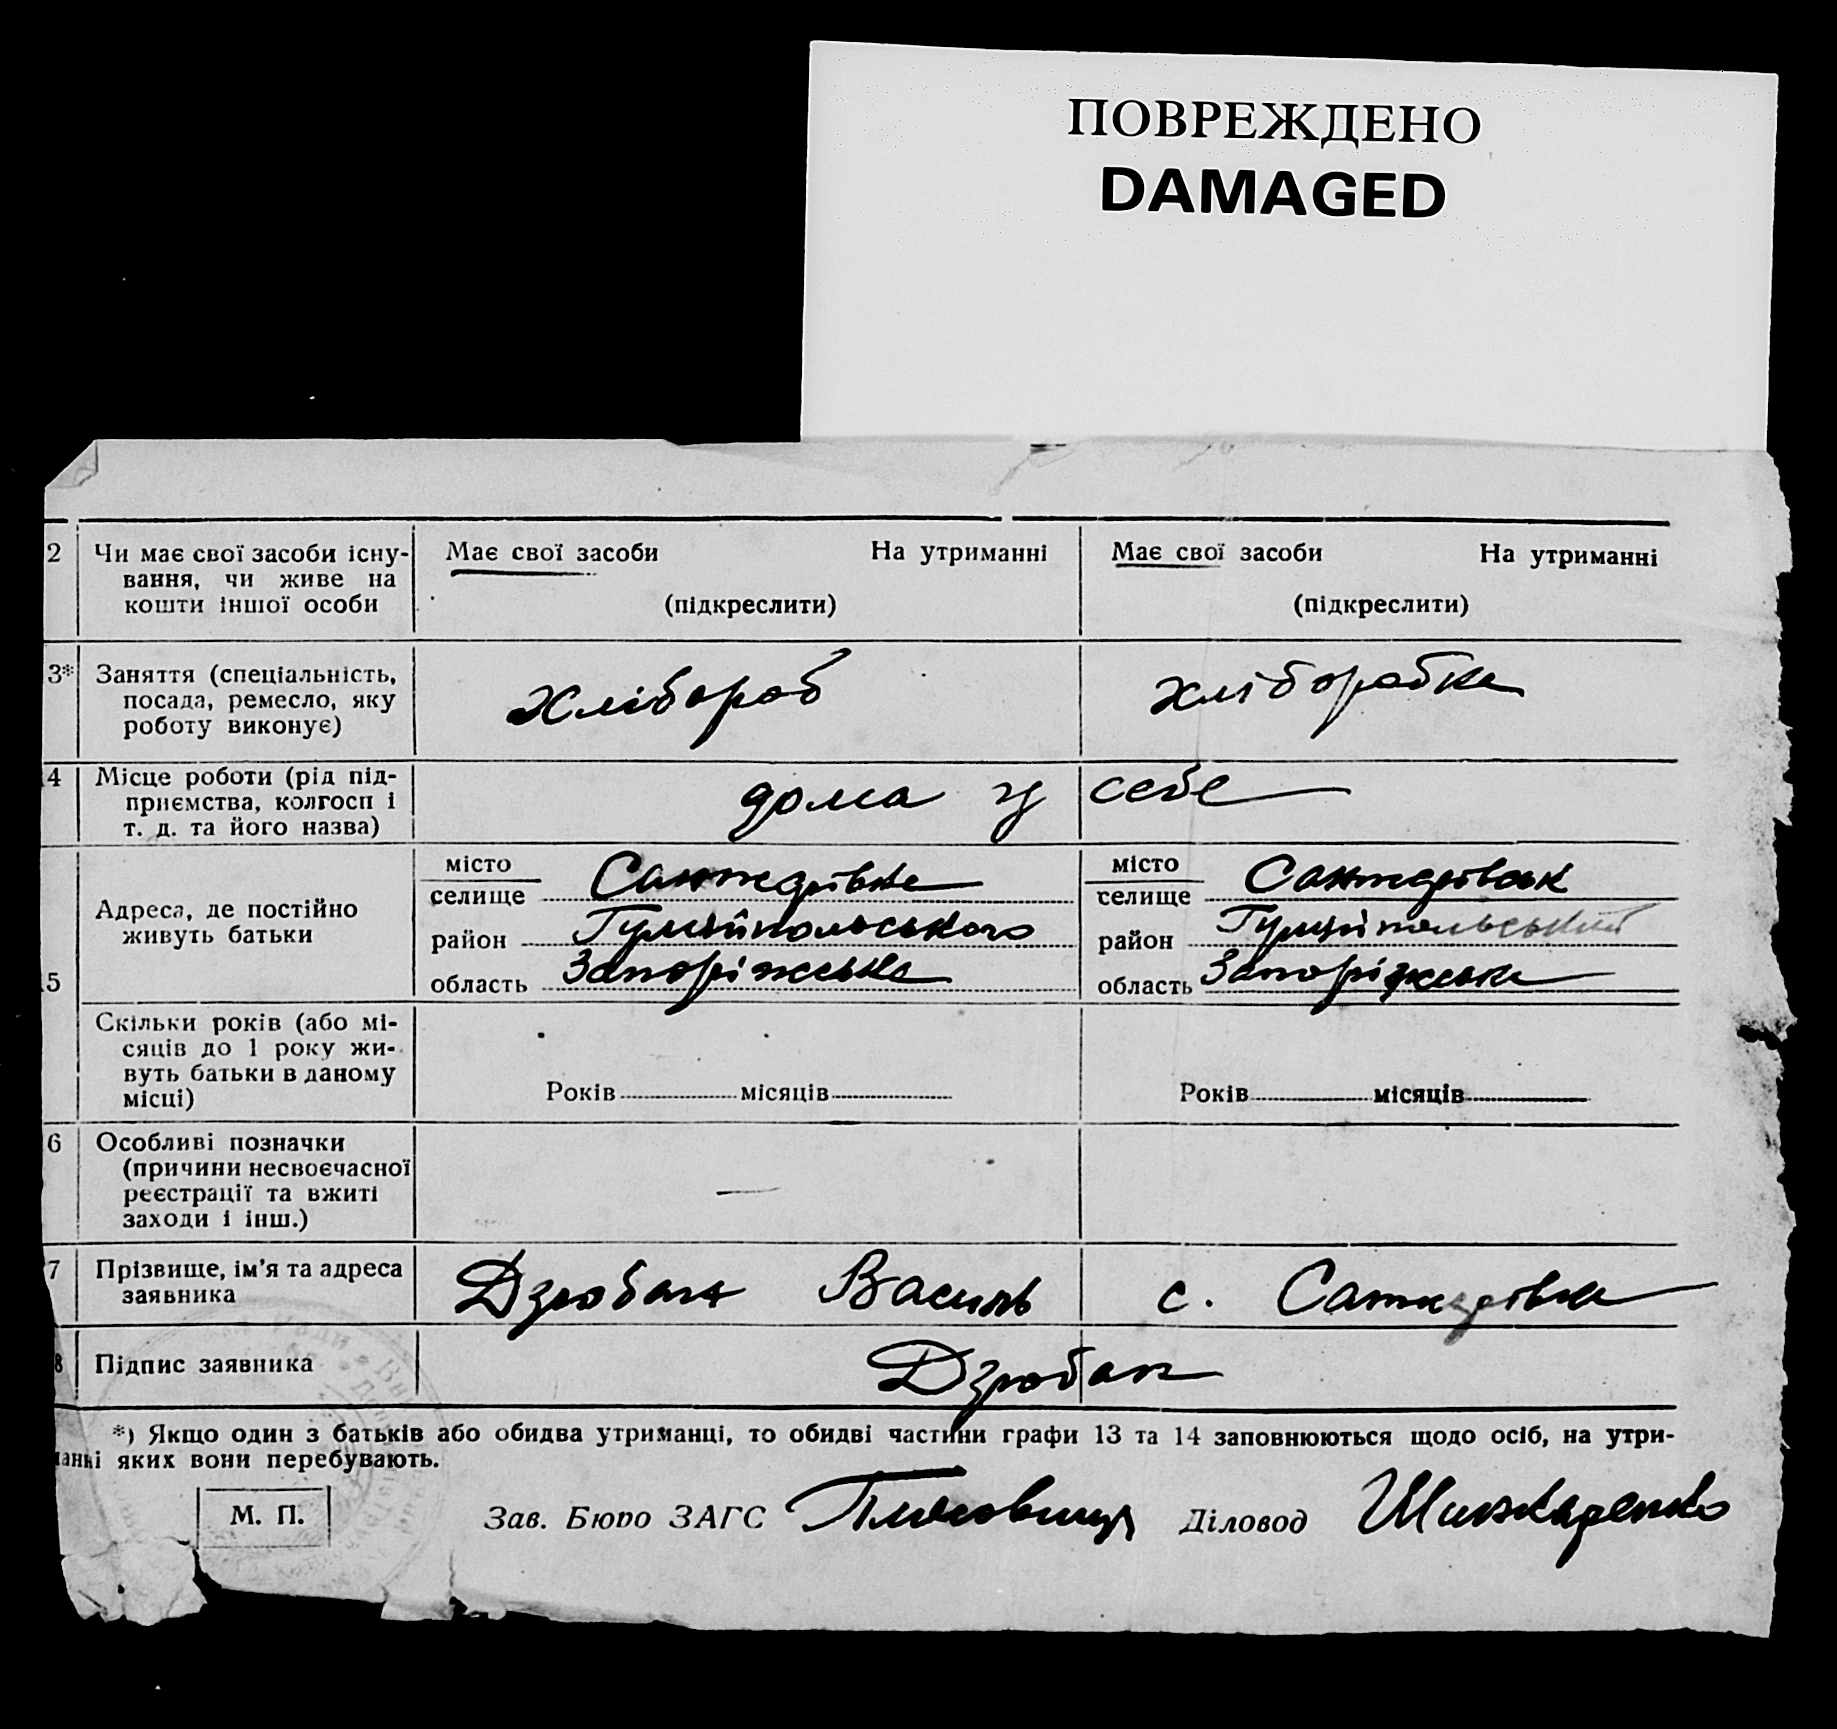 ПОВРЕЖДЕНО
DAMAGED
2 Чи має свої засоби існу-
вання, чи живе на
кошти іншої особи
Має свої засоби На утриманні
(підкреслити)
Має свої засоби На утриманні
(підкреслити)
3* Заняття (спеціальність,
посада, ремесло, яку
роботу виконує)
Хлібороб
хліборобка
4 Місце роботи (рід під-
приємства, колгосп і
т. д. та його назва)
дома у себе
5
Адреса, де постійно
живуть батьки
місто
селище
район Гуляйпольського
область Запоріжська
місто
селище
район Гуляйпольський
область Запоріжська
Скільки років (або мі-
сяців до 1 року жи-
вуть батьки в даному
місці)
Років місяців
Років місяців
6 Особливі позначки
(причини несвоєчасної
реєстрації та вжиті
заходи і інш.)
—
7 Прізвище, ім'я та адреса
заявника
Дзюбан Василь с.
8 Підпис заявника
Дзюбан
*) Якщо один з батьків або обидва утриманці, то обидві частини графи 13 та 14 заповнюються щодо осіб, на утри-
анні яких вони перебувають.
М. П.
Зав. Бюро ЗАГС Діловод Шинкаренко